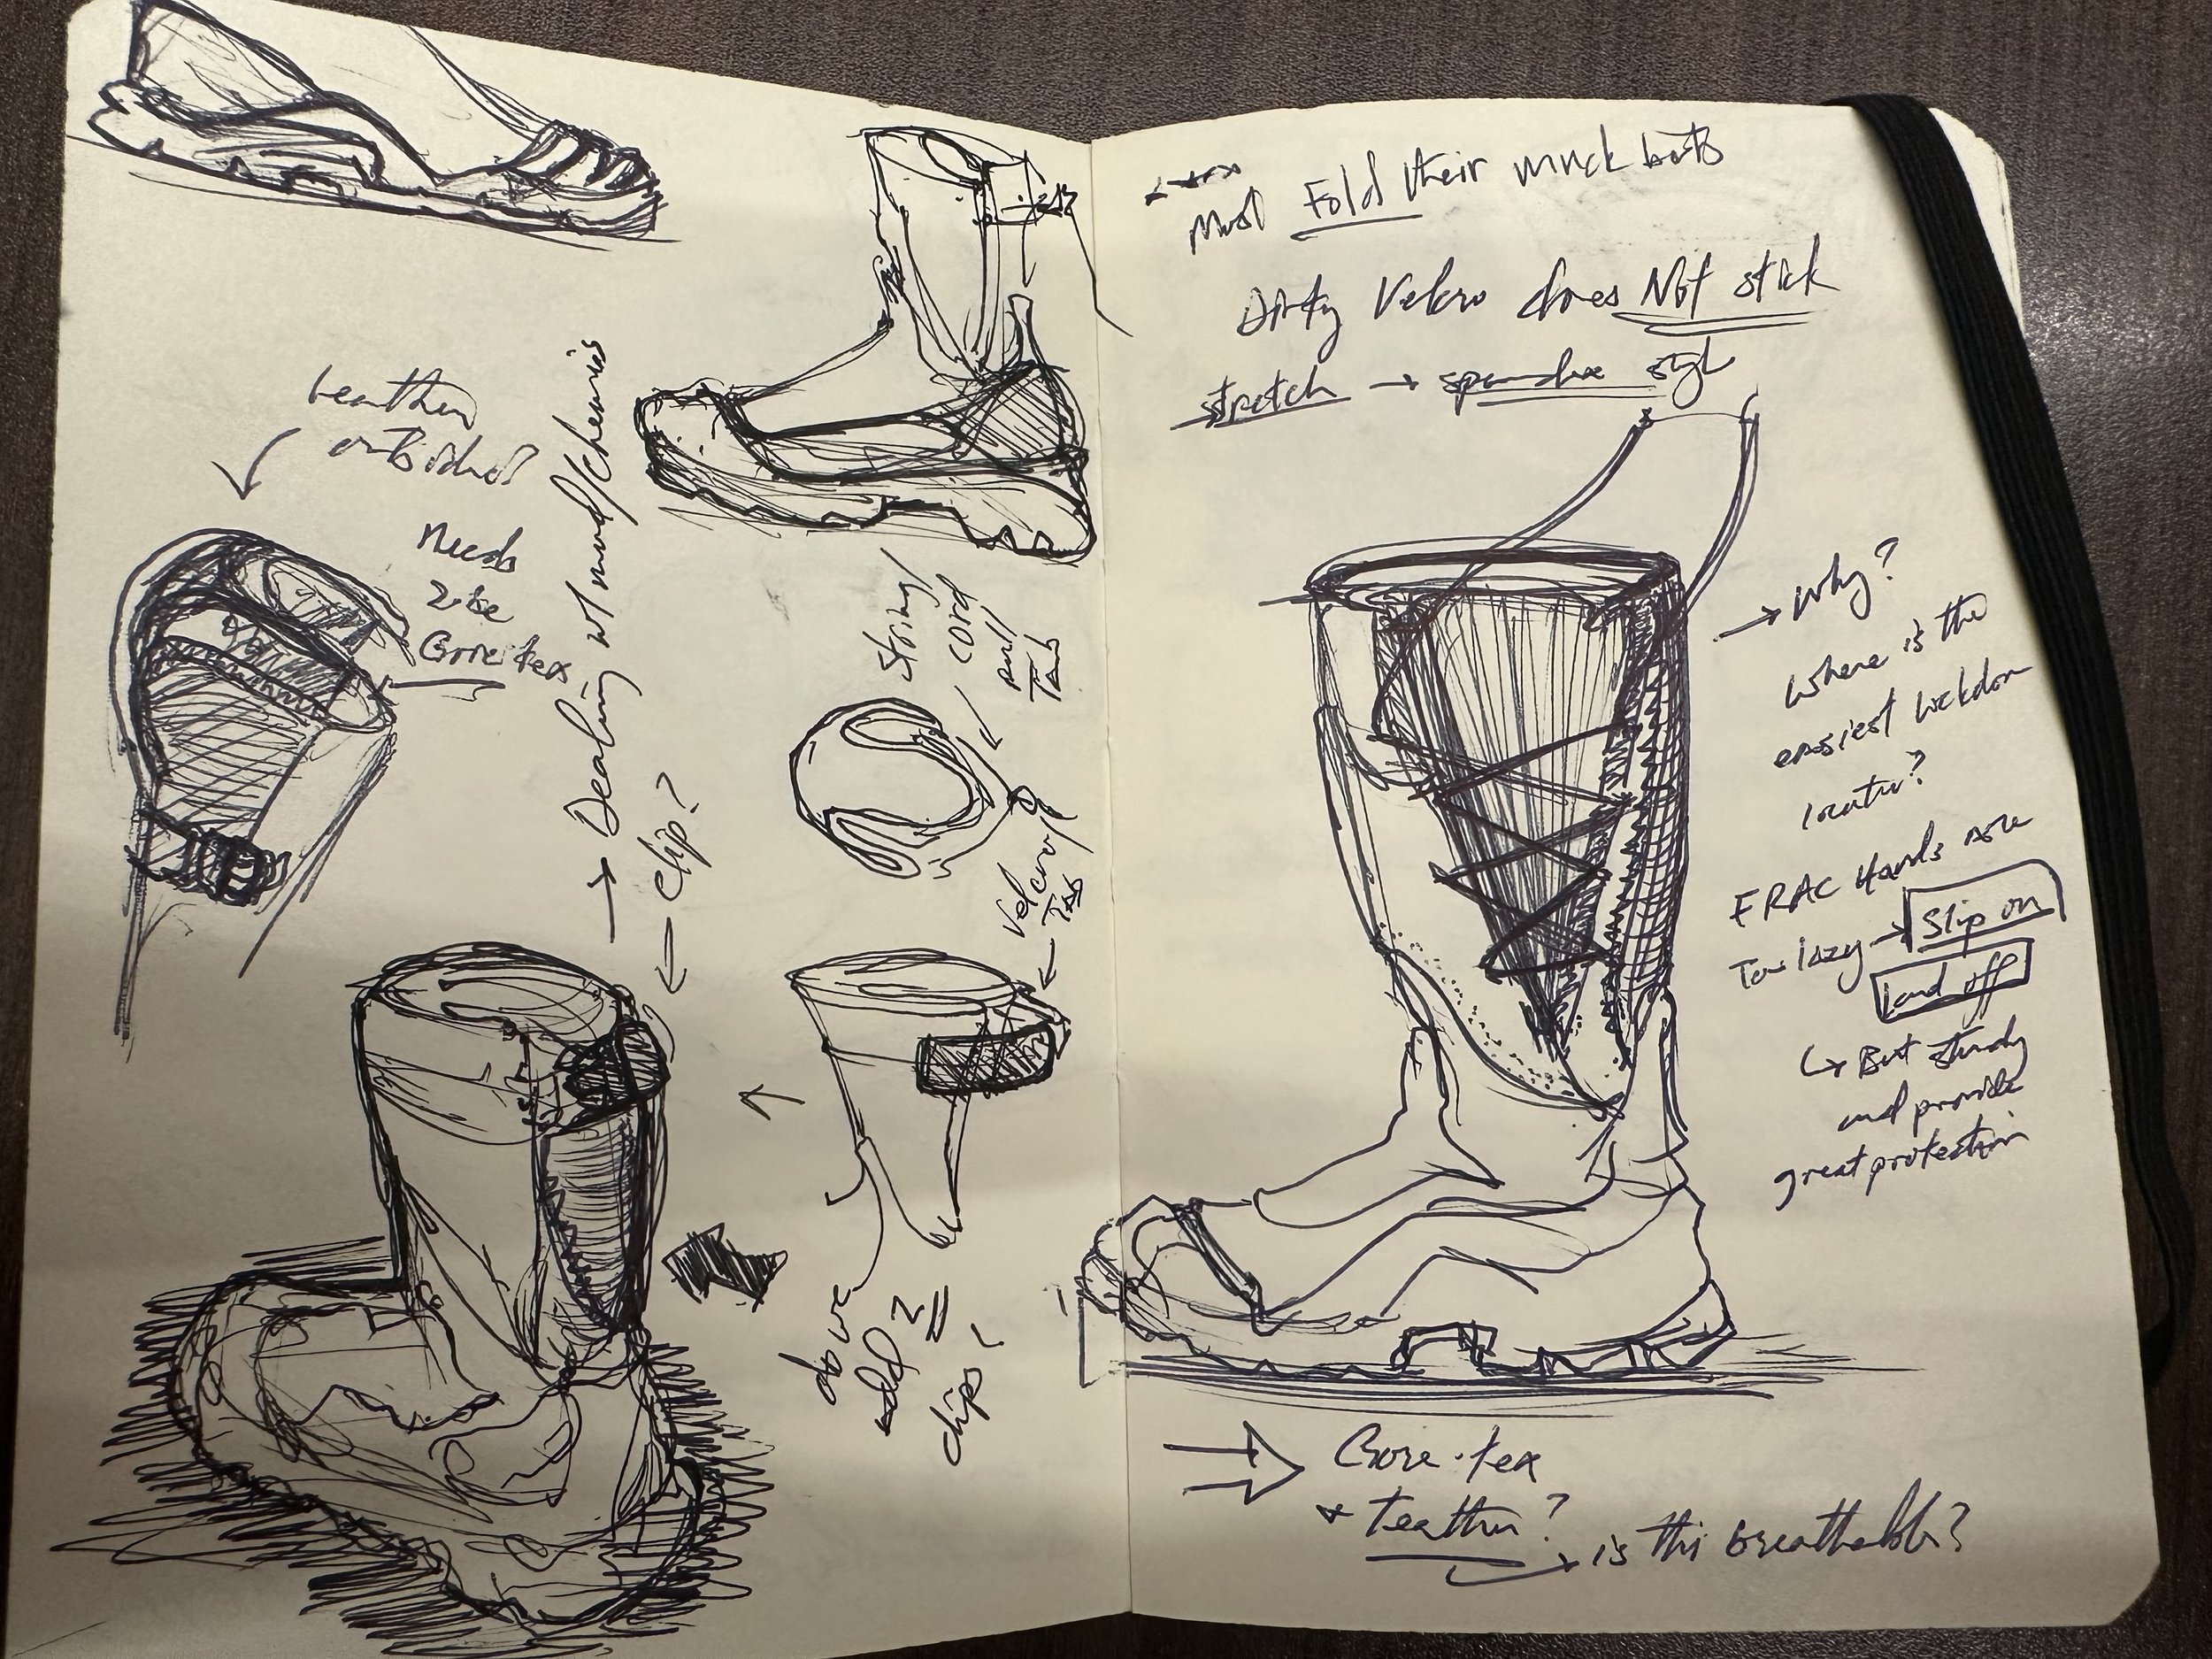 Leather
outside?
Needs
2 be
Gore-tex
→ Dealing w/ mud/chemis
← Clip?
String/
cord
pull
Tab
Velcro
Tab
above
add 2
clips?
Most Fold their muck boots
Dirty Velcro does Not stick
stretch → spandex
→ Why?
Where is the
easiest lockdown
FRAC Hands are
Too lazy → Slip on
and off
↳ But sturdy
and provide
great protection
Gore-tex
+ Leather?
is this breathable?